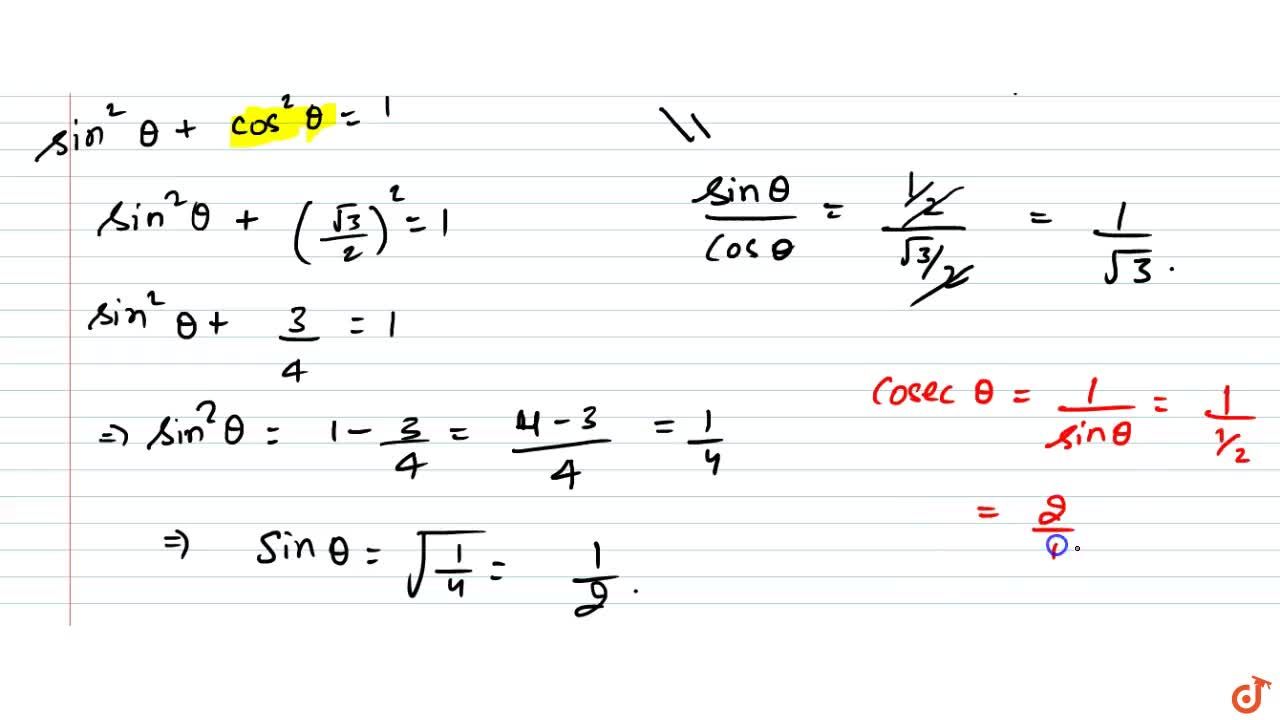 sin² θ + cos² θ = 1
sin² θ + (√3/2)² = 1
sin² θ + 3/4 = 1
⇒ sin² θ = 1 - 3/4 = 4-3/4 = 1/4
⇒ sin θ = √1/4 = 1/2.
sin θ/cos θ = 1/2/√3/2 = 1/√3.
cosec θ = 1/sin θ = 1/1/2
= 2/1